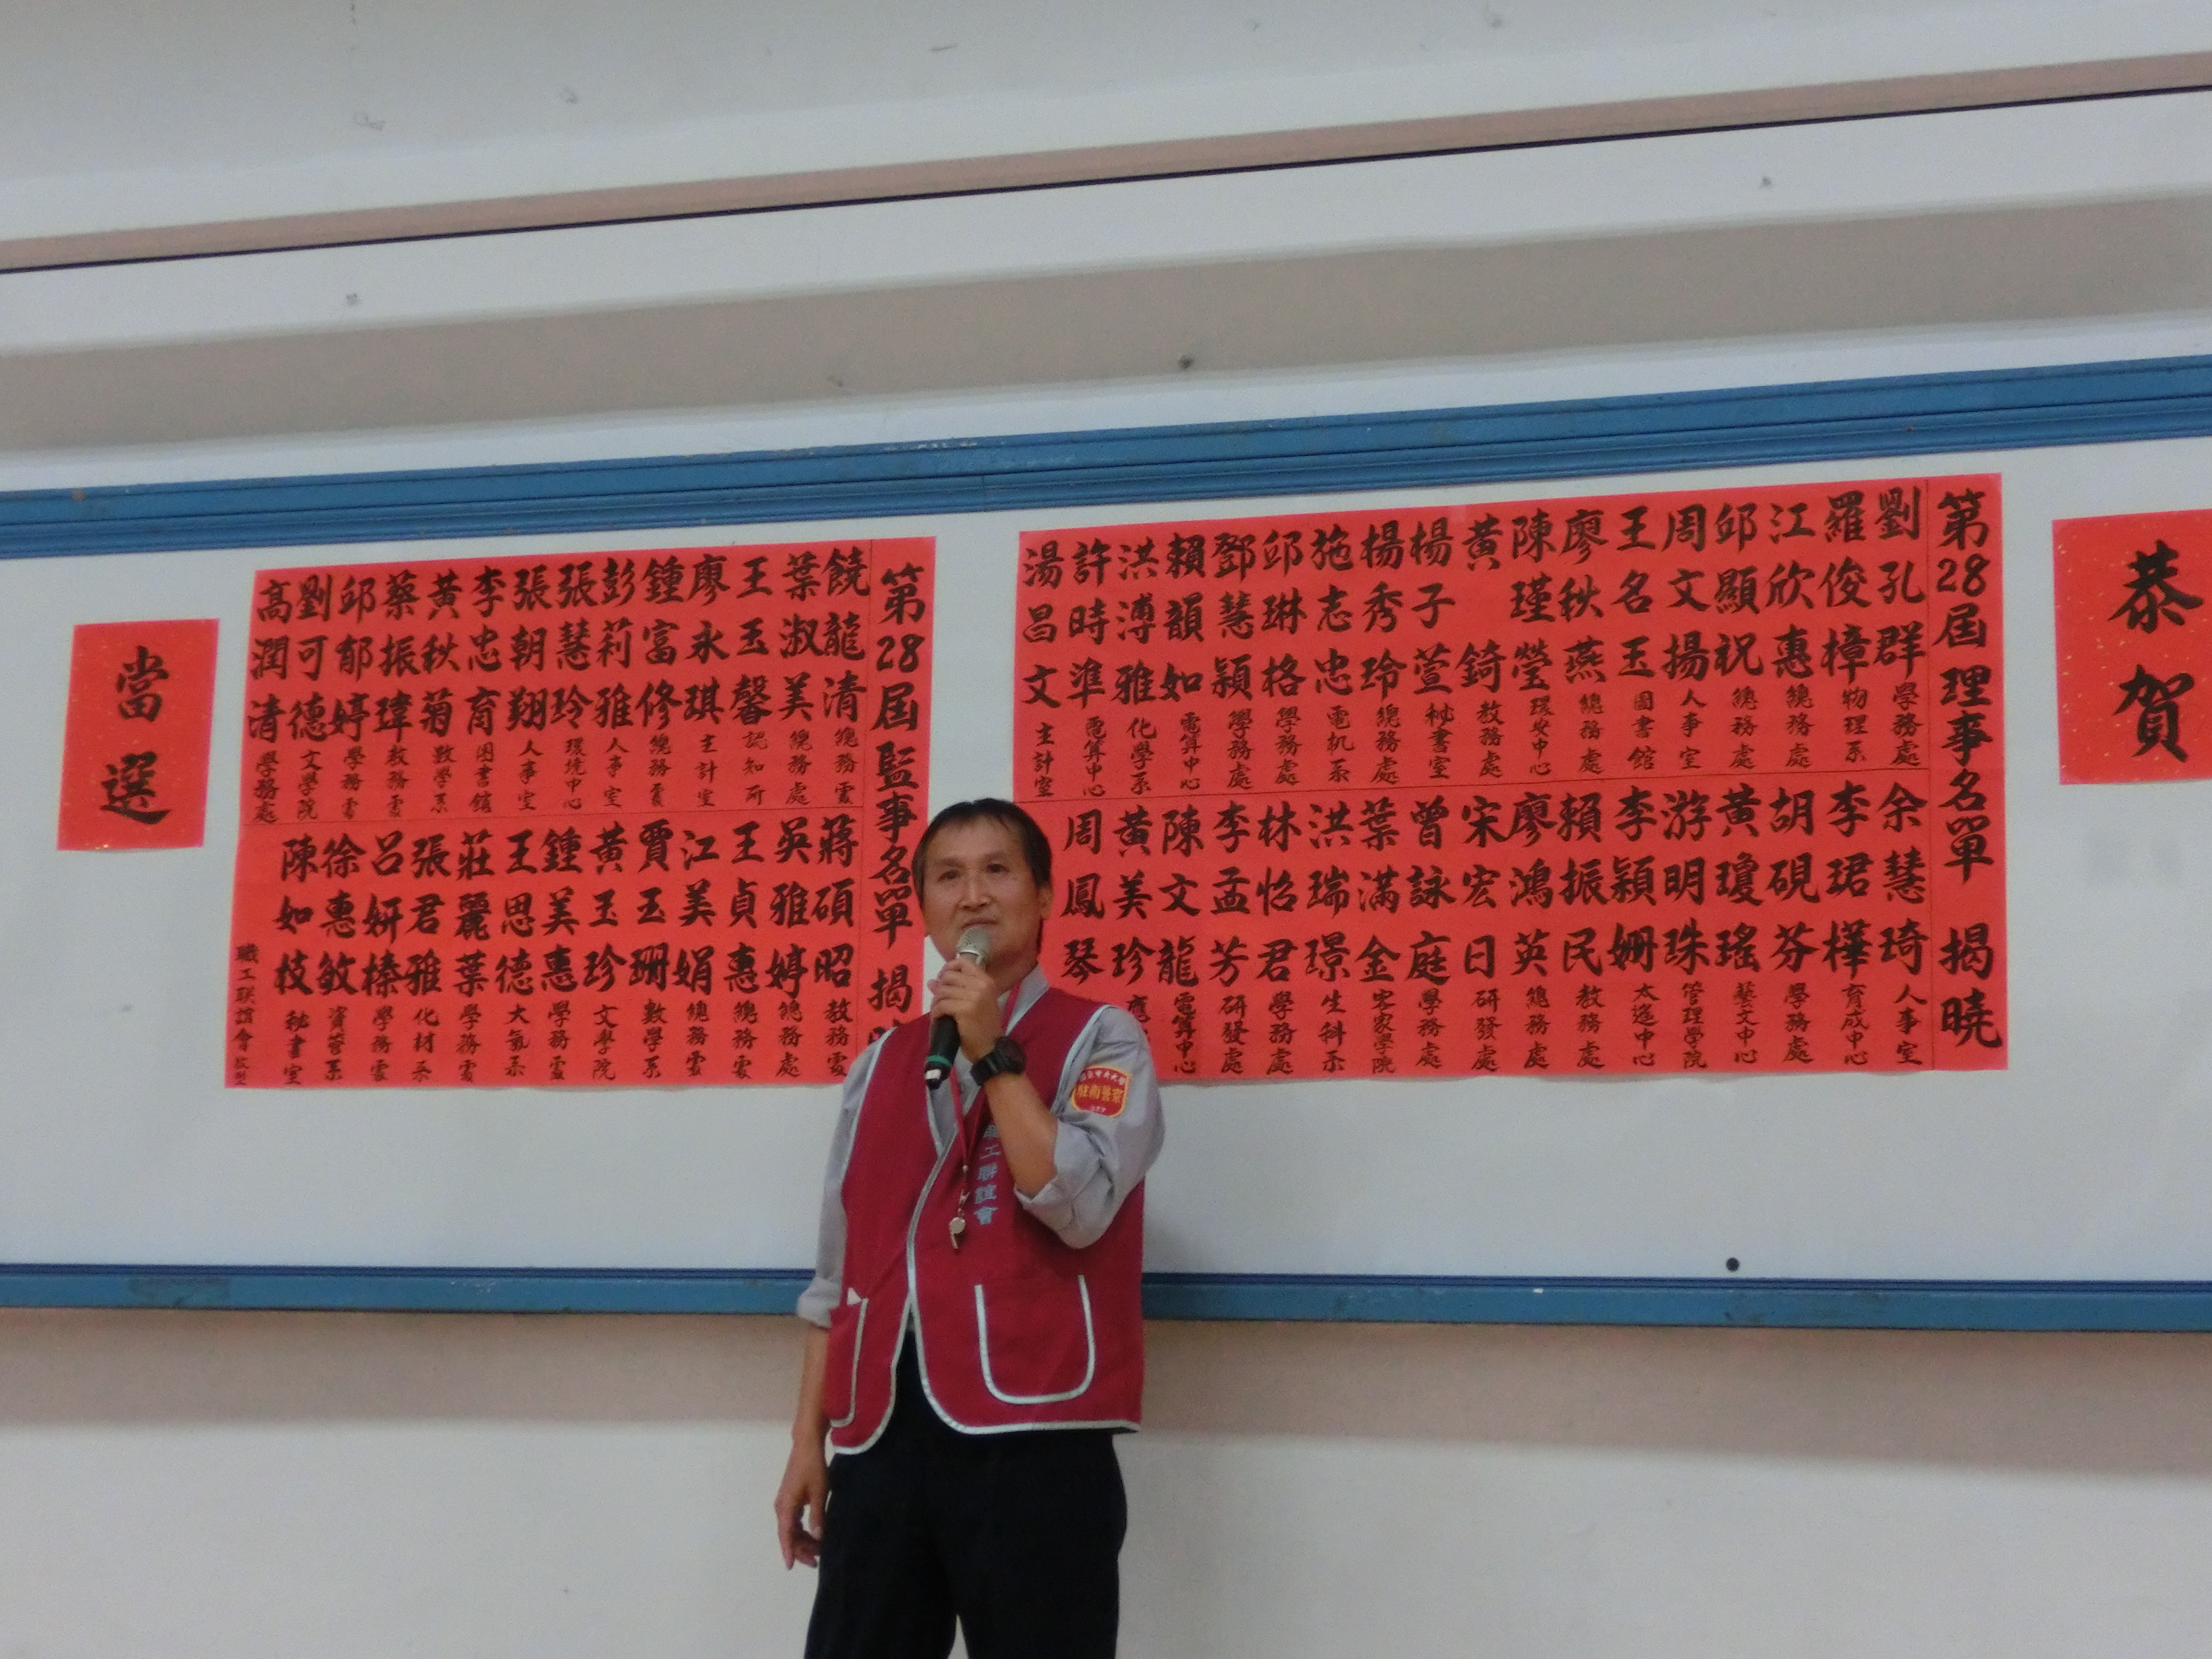 恭賀
第28屆理事名單 揭曉
劉孔群 學務處
羅俊樟 物理系
江欣惠 總務處
邱顯祝 總務處
周文揚 人事室
王名玉 圖書館
廖秋燕 總務處
陳瑾瑩 環安中心
黃錡 教務處
楊子萱 秘書室
楊秀玲 總務處
施志忠 電机系
邱琳格 學務處
鄧慧穎 學務處
賴韻如 電算中心
洪溥雅 化學系
許時準 電算中心
湯昌文 主計室
余慧琦 人事室
李珺樺 育成中心
胡硯芬 學務處
黃瓊瑤 藝文中心
游明珠 管理學院
李穎姍 太遙中心
賴振民 教務處
廖鴻英 總務處
宋宏日 研發處
曾詠庭 學務處
葉滿金 客家學院
洪瑞璟 生科系
林怡君 學務處
李孟芳 研發處
陳文龍 電算中心
黃美珍 應
周鳳琴
第28屆監事名單 揭
饒龍清 總務處
葉淑美 總務處
王玉馨 認知所
廖永琪 主計室
鍾富修 總務處
彭莉雅 人事室
張慧玲 環境中心
張朝翔 人事室
李忠育 圖書館
黃秋菊 數學系
蔡振瑋 教務處
邱郁婷 學務處
劉可德 文學院
高潤清 學務處
蔣碩昭 教務處
吳雅婷 總務處
王貞惠 總務處
江美娟 總務處
賈玉珊 數學系
黃玉珍 文學院
鍾美惠 學務處
王思德 大氣系
莊麗葉 學務處
張君雅 化材系
呂妍榛 學務處
徐惠敏 資管系
陳如枝 秘書室
職工联誼會
當選
駐衛警察
工聯誼會